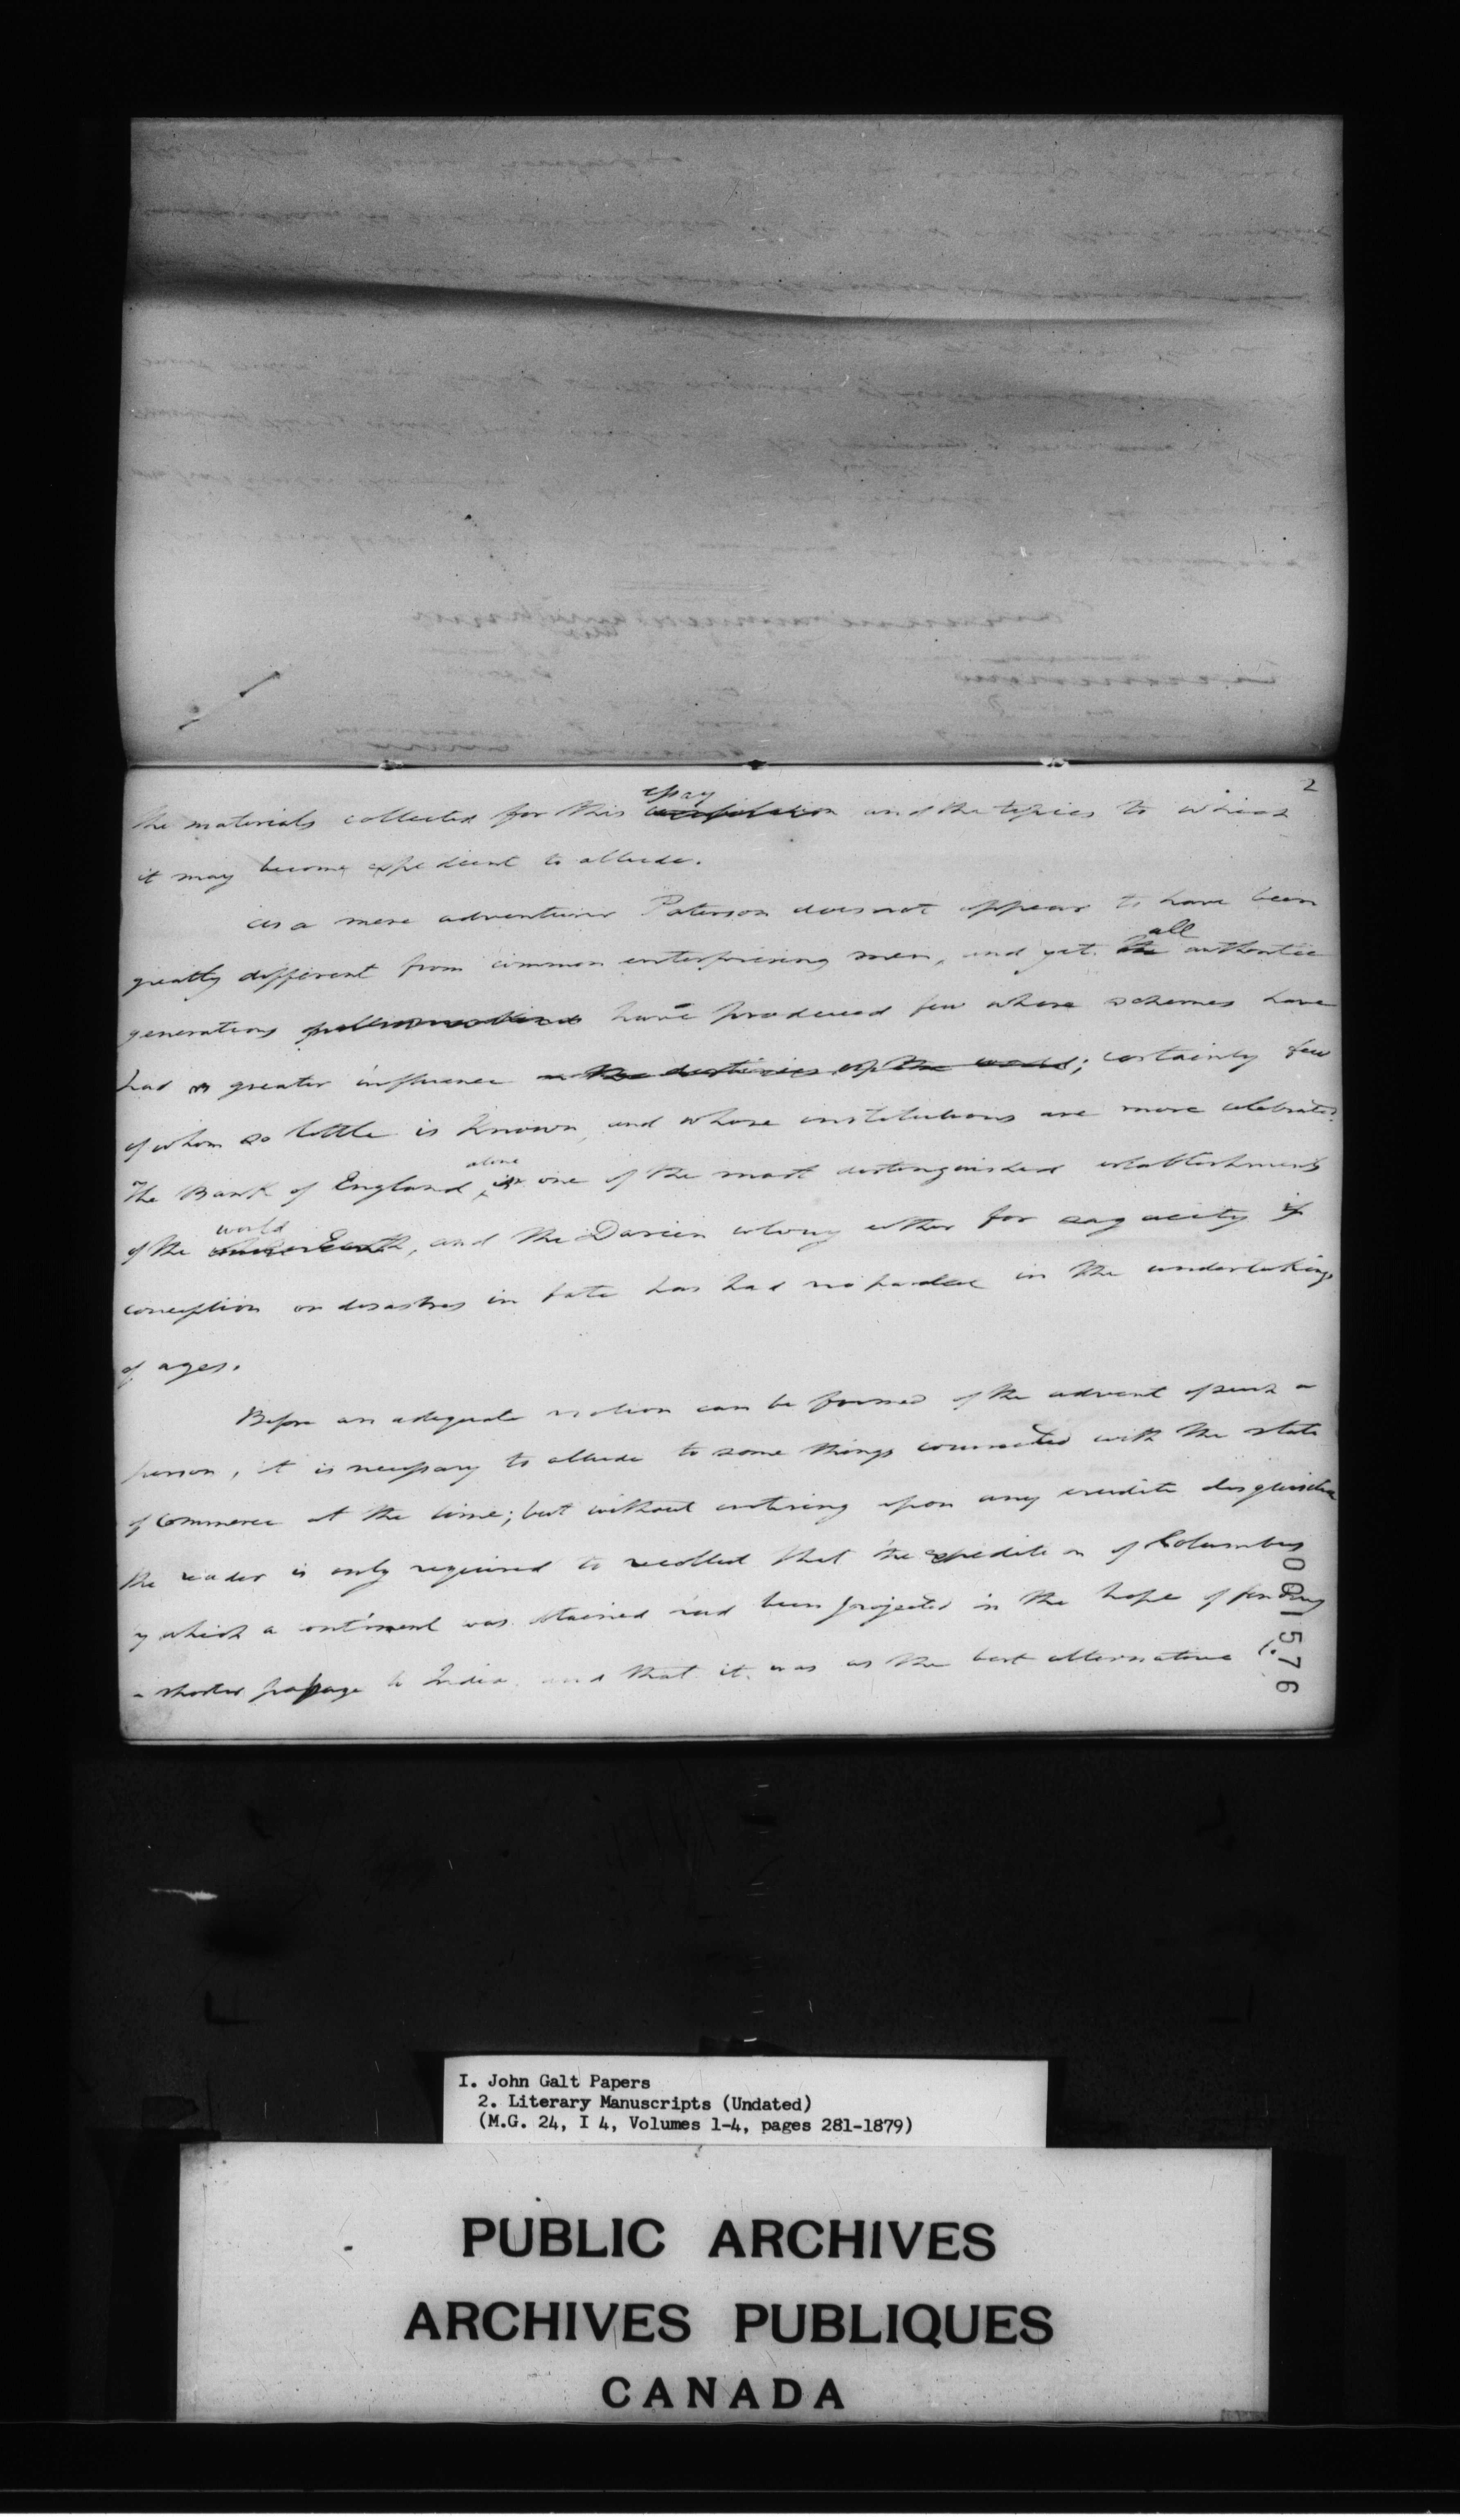 2
essay
the materials collected for this compilation and the topics to which
it may become expedient to allude.
as a mere adventurer Paterson does not appear to have been
all
greatly different from common enterprising men, and yet the authentic
generations have produced few whose schemes have
had a greater influence on the destinies of the world; certainly few
of whom so little is known, and whose institutions are more celebrated.
alone
The Bank of England, is one of the most distinguished establishments
world
of the Earth, and the Darien colony either for sagacity of
conception or disastres in fate has had no parallel in the undertakings
of ages.
Before an adequate notion can be formed of the advent of such a
person, it is necessary to allude to some things connected with the state
of commerce at the time; but without entering upon any erudite disquisition
the reader is only required to recollect that the expedition of Columbus
by which a continent was obtained had been projected in the hope of finding
a shorter passage to India and that it was as the best alternative
001576
I. John Galt Papers
2. Literary Manuscripts (Undated)
(M.G. 24, I 4, Volumes 1-4, pages 281-1879)
PUBLIC ARCHIVES
ARCHIVES PUBLIQUES
CANADA